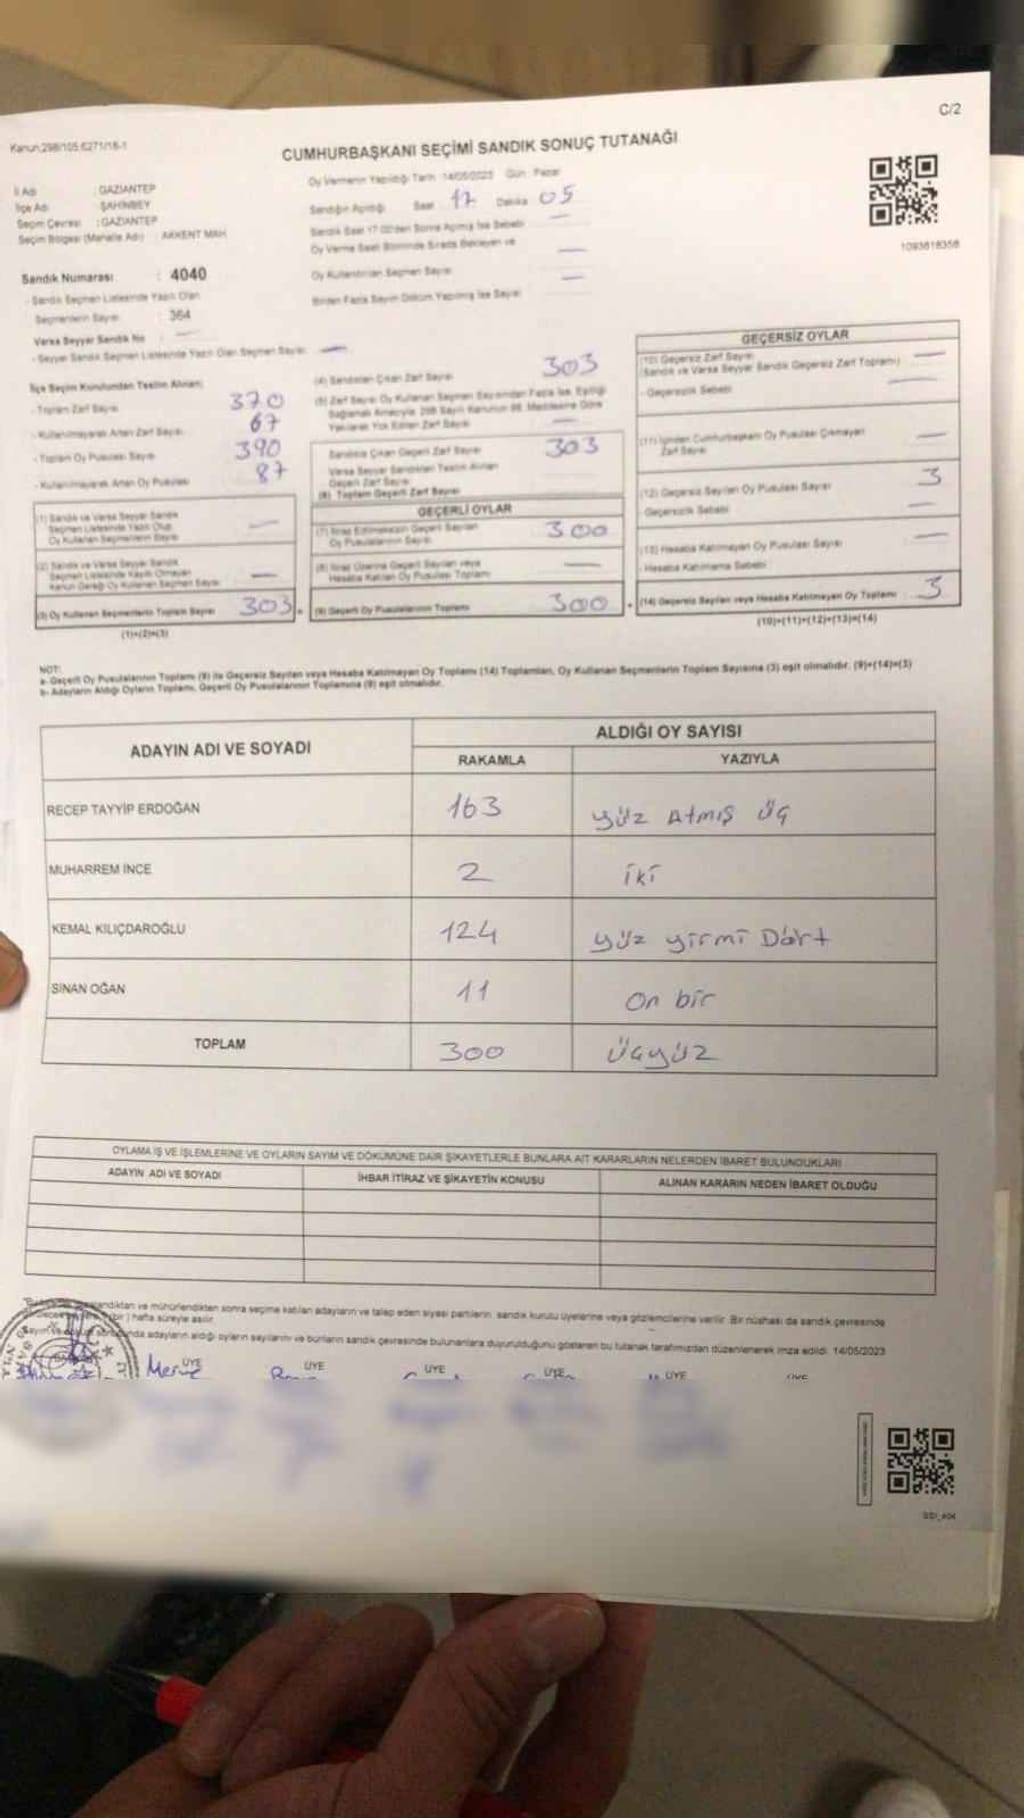 C/2
Kanun:298/105.6271/16-1
CUMHURBAŞKANI SEÇİMİ SANDIK SONUÇ TUTANAĞI
İl Adı : GAZİANTEP
İlçe Adı : ŞAHİNBEY
Seçim Çevresi : GAZİANTEP
Seçim Bölgesi (Mahalle Adı) : AKKENT MAH.
Oy Vermenin Yapıldığı Tarih 14/05/2023 Gün Pazar
Sandığın Açıldığı Saat 17 Dakika 05
Sandık Saat 17.00'den Sonra Açılmış İse Sebebi
Oy Verme Saati Bitiminde Sırada Bekleyen ve
Oy Kullandırılan Seçmen Sayısı
Birden Fazla Sayım Döküm Yapılmış İse Sayısı
1093618358
Sandık Numarası : 4040
- Sandık Seçmen Listesinde Yazılı Olan
Seçmenlerin Sayısı : 364
Varsa Seyyar Sandık No
- Seyyar Sandık Seçmen Listesinde Yazılı Olan Seçmen Sayısı
İlçe Seçim Kurulundan Teslim Alınan;
- Toplam Zarf Sayısı 370
- Kullanılmayarak Artan Zarf Sayısı 67
- Toplam Oy Pusulası Sayısı 390
- Kullanılmayarak Artan Oy Pusulası 87
(1) Sandık ve Varsa Seyyar Sandık
Seçmen Listesinde Yazılı Olup
Oy Kullanan Seçmenlerin Sayısı
(2) Sandık ve Varsa Seyyar Sandık
Seçmen Listesinde Kayıtlı Olmayan
Kanun Gereği Oy Kullanan Seçmen Sayısı
(3) Oy Kullanan Seçmenlerin Toplam Sayısı 303
(1)+(2)=(3)
(4) Sandıktan Çıkan Zarf Sayısı 303
(5) Zarf Sayısı Oy Kullanan Seçmen Sayısından Fazla İse, Eşitliği
Sağlamak Amacıyla 298 Sayılı Kanunun 98. Maddesine Göre
Yakılarak Yok Edilen Zarf Sayısı
Sandıkta Çıkan Geçerli Zarf Sayısı 303
Varsa Seyyar Sandıktan Teslim Alınan
Geçerli Zarf Sayısı
(6) Toplam Geçerli Zarf Sayısı
GEÇERLİ OYLAR
(7) İtiraz Edilmeksizin Geçerli Sayılan
Oy Pusulalarının Sayısı 300
(8) İtiraz Üzerine Geçerli Sayılan veya
Hesaba Katılan Oy Pusulası Toplamı
(9) Geçerli Oy Pusulalarının Toplamı 300
GEÇERSİZ OYLAR
(10) Geçersiz Zarf Sayısı
(Sandık ve Varsa Seyyar Sandık Geçersiz Zarf Toplamı)
- Geçersizlik Sebebi
(11) İçinden Cumhurbaşkanı Oy Pusulası Çıkmayan
Zarf Sayısı
(12) Geçersiz Sayılan Oy Pusulası Sayısı 3
Geçersizlik Sebebi
(13) Hesaba Katılmayan Oy Pusulası Sayısı
- Hesaba Katılmama Sebebi
(14) Geçersiz Sayılan veya Hesaba Katılmayan Oy Toplamı 3
(10)+(11)+(12)+(13)=(14)
NOT:
a- Geçerli Oy Pusulalarının Toplamı (9) ile Geçersiz Sayılan veya Hesaba Katılmayan Oy Toplamı (14) Toplamları, Oy Kullanan Seçmenlerin Toplam Sayısına (3) eşit olmalıdır. (9)+(14)=(3)
b- Adayların Aldığı Oyların Toplamı, Geçerli Oy Pusulalarının Toplamına (9) eşit olmalıdır.
ADAYIN ADI VE SOYADI
ALDIĞI OY SAYISI
RAKAMLA YAZIYLA
RECEP TAYYİP ERDOĞAN 163 yüz Atmış üç
MUHARREM İNCE 2 iki
KEMAL KILIÇDAROĞLU 124 yüz yirmi Dört
SİNAN OĞAN 11 On bir
TOPLAM 300 üçyüz
OYLAMA İŞ VE İŞLEMLERİNE VE OYLARIN SAYIM VE DÖKÜMÜNE DAİR ŞİKAYETLERLE BUNLARA AİT KARARLARIN NELERDEN İBARET BULUNDUKLARI
ADAYIN ADI VE SOYADI İHBAR İTİRAZ VE ŞİKAYETİN KONUSU ALINAN KARARIN NEDEN İBARET OLDUĞU
ve mühürlendikten sonra seçime katılan adayların ve talep eden siyasi partilerin sandık kurulu üyelerine veya gözlemcilerine verilir. Bir nüshası da sandık çevresinde
hafta süreyle asılır.
adayların aldığı oyların sayılarını ve bunların sandık çevresinde bulunanlara duyurulduğunu gösteren bu tutanak tarafımızdan düzenlenerek imza edildi. 14/05/2023
ÜYE ÜYE ÜYE ÜYE ÜYE ÜYE
Merve